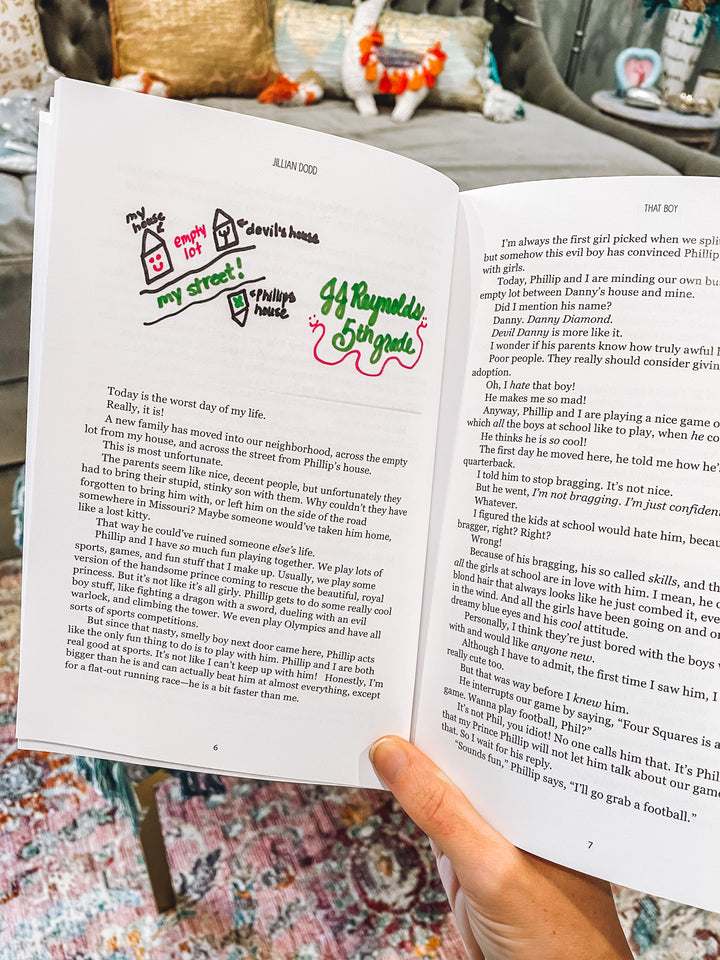 JILLIAN DODD
my
house
empty
lot
devil's house
my street!
Phillips
house
JJ Reynolds
5th grade
Today is the worst day of my life.
Really, it is!
A new family has moved into our neighborhood, across the empty
lot from my house, and across the street from Phillip's house.
This is most unfortunate.
The parents seem like nice, decent people, but unfortunately they
had to bring their stupid, stinky son with them. Why couldn't they have
forgotten to bring him with, or left him on the side of the road
somewhere in Missouri? Maybe someone would've taken him home,
like a lost kitty.
That way he could've ruined someone else's life.
Phillip and I have so much fun playing together. We play lots of
sports, games, and fun stuff that I make up. Usually, we play some
version of the handsome prince coming to rescue the beautiful, royal
princess. But it's not like it's all girly. Phillip gets to do some really cool
boy stuff, like fighting a dragon with a sword, dueling with an evil
warlock, and climbing the tower. We even play Olympics and have all
sorts of sports competitions.
But since that nasty, smelly boy next door came here, Phillip acts
like the only fun thing to do is to play with him. Phillip and I are both
real good at sports. It's not like I can't keep up with him! Honestly, I'm
bigger than he is and can actually beat him at almost everything, except
for a flat-out running race—he is a bit faster than me.
6
THAT BOY
I'm always the first girl picked when we
but somehow this evil boy has convinced Phillip
with girls.
Today, Phillip and I are minding our own
empty lot between Danny's house and mine.
Did I mention his name?
Danny. Danny Diamond.
Devil Danny is more like it.
I wonder if his parents know how truly awful
Poor people. They really should consider
adoption.
Oh, I hate that boy!
He makes me so mad!
Anyway, Phillip and I are playing a nice game
which all the boys at school like to play, when he
He thinks he is so cool!
The first day he moved here, he told me how
quarterback.
I told him to stop bragging. It's not nice.
But he went, I'm not bragging. I'm just
Whatever.
I figured the kids at school would hate him,
bragger, right? Right?
Wrong!
Because of his bragging, his so called skills, and
all the girls at school are in love with him. I mean, he
blond hair that always looks like he just combed it,
in the wind. And all the girls have been going on and
dreamy blue eyes and his cool attitude.
Personally, I think they're just bored with the boys
with and would like anyone new.
Although I have to admit, the first time I saw him, I
really cute too.
But that was way before I knew him.
He interrupts our game by saying, "Four Squares is
game. Wanna play football, Phil?"
It's not Phil, you idiot! No one calls him that. It's
that my Prince Phillip will not let him talk about our
that. So I wait for his reply.
"Sounds fun," Phillip says, "I'll go grab a football."
7